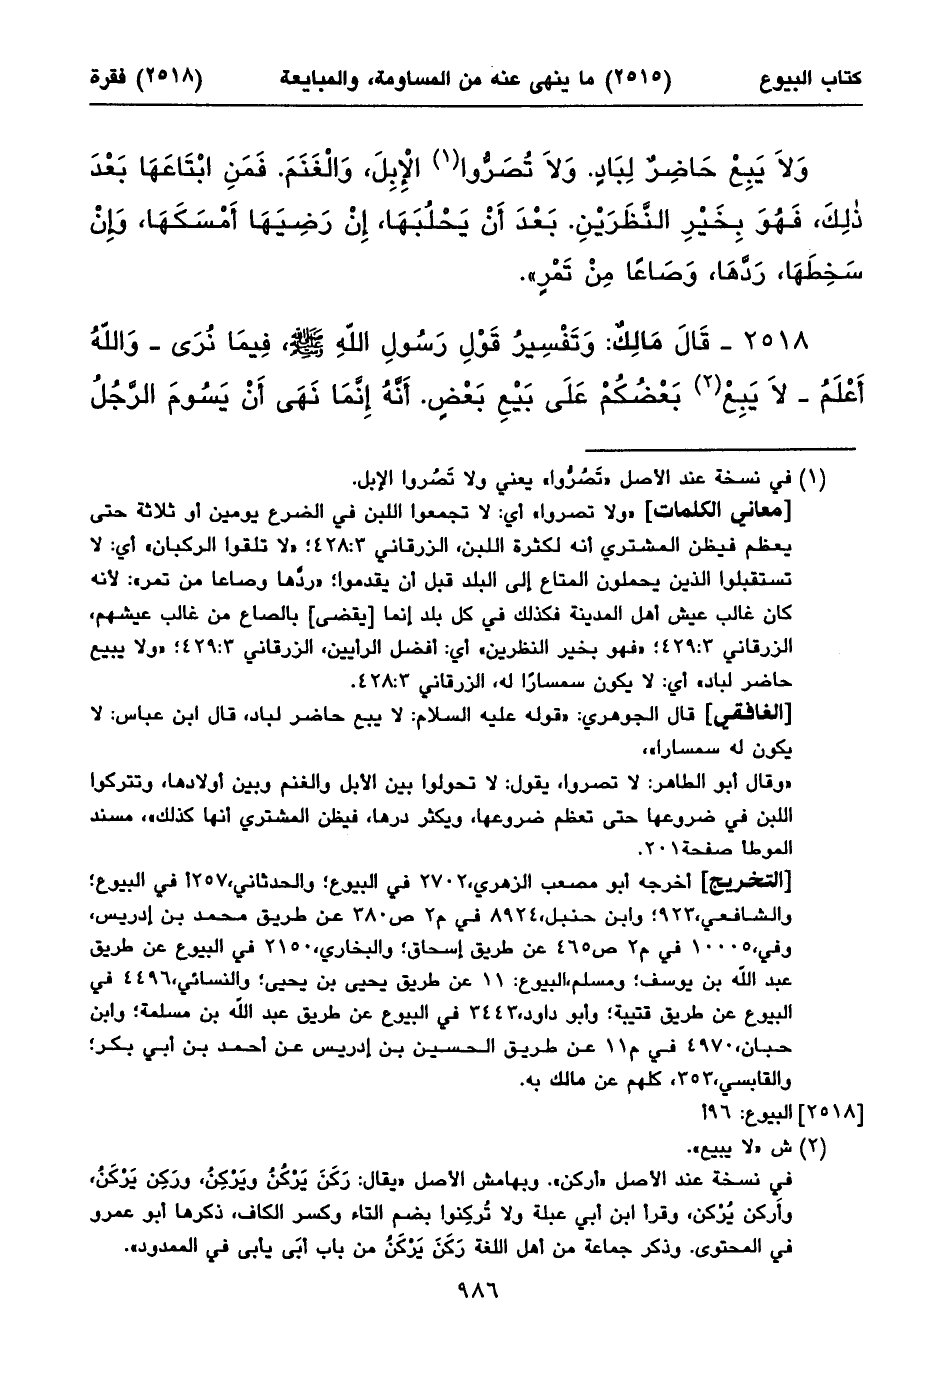 كتاب البيوع (٢٥١٥) ما ينهى عنه من المساومة، والمبايعة (٢٥١٨) فقرة
وَلاَ يَبِعْ حَاضِرٌ لِبَادٍ. وَلاَ تُصَرُّوا(١) الْإِبِلَ، وَالْغَنَمَ. فَمَنِ ابْتَاعَهَا بَعْدَ
ذٰلِكَ، فَهُوَ بِخَيْرِ النَّظَرَيْنِ. بَعْدَ أَنْ يَحْلُبَهَا، إِنْ رَضِيَهَا أَمْسَكَهَا، وَإِنْ
سَخِطَهَا، رَدَّهَا، وَصَاعًا مِنْ تَمْرٍ».
٢٥١٨ - قَالَ مَالِكٌ: وَتَفْسِيرُ قَوْلِ رَسُولِ اللّهِ ﷺ، فِيمَا نُرَى - وَاللّهُ
أَعْلَمُ - لاَ يَبِعْ(٢) بَعْضُكُمْ عَلَى بَيْعِ بَعْضٍ. أَنَّهُ إِنَّمَا نَهَى أَنْ يَسُومَ الرَّجُلُ
(١) في نسخة عند الأصل «تَصُرُّوا» يعني ولا تَصُروا الإبل.
[معاني الكلمات] «ولا تصروا» أي: لا تجمعوا اللبن في الضرع يومين أو ثلاثة حتى
يعظم فيظن المشتري أنه لكثرة اللبن، الزرقاني ٤٢٨:٣؛ «لا تلقوا الركبان» أي: لا
تستقبلوا الذين يحملون المتاع إلى البلد قبل أن يقدموا؛ «ردَّها وصاعا من تمر»: لأنه
كان غالب عيش أهل المدينة فكذلك في كل بلد إنما [يقضى] بالصاع من غالب عيشهم،
الزرقاني ٤٢٩:٣؛ «فهو بخير النظرين» أي: أفضل الرأيين، الزرقاني ٤٢٩:٣؛ «ولا يبيع
حاضر لباد» أي: لا يكون سمسارًا له، الزرقاني ٤٢٨:٣.
[الغافقي] قال الجوهري: «قوله عليه السلام: لا يبع حاضر لباد، قال ابن عباس: لا
يكون له سمسارا»،
«وقال أبو الطاهر: لا تصروا، يقول: لا تحولوا بين الأبل والغنم وبين أولادها، وتتركوا
اللبن في ضروعها حتى تعظم ضروعها، ويكثر درها، فيظن المشتري أنها كذلك»، مسند
الموطا صفحة٢٠١.
[التخريج] أخرجه أبو مصعب الزهري،٢٧٠٢ في البيوع؛ والحدثاني،٢٥٧أ في البيوع؛
والشافعي،٩٢٣؛ وابن حنبل،٨٩٢٤ في م٢ ص٣٨٠ عن طريق محمد بن إدريس،
وفي،١٠٠٠٥ في م٢ ص٤٦٥ عن طريق إسحاق؛ والبخاري،٢١٥٠ في البيوع عن طريق
عبد اللّه بن يوسف؛ ومسلم،البيوع: ١١ عن طريق يحيى بن يحيى؛ والنسائي،٤٤٩٦ في
البيوع عن طريق قتيبة؛ وأبو داود،٣٤٤٣ في البيوع عن طريق عبد اللّه بن مسلمة؛ وابن
حبان،٤٩٧٠ في م١١ عن طريق الحسين بن إدريس عن أحمد بن أبي بكر؛
والقابسي،٣٥٣، كلهم عن مالك به.
[٢٥١٨] البيوع: ٩٦أ
(٢) ش «لا يبيع».
في نسخة عند الأصل «أركن». وبهامش الأصل «يقال: رَكَنَ يَرْكُنُ ويَرْكِنُ، ورَكِن يَرْكَنُ،
وأَركن يُرْكن، وقرأ ابن أبي عبلة ولا تُركِنوا بضم التاء وكسر الكاف، ذكرها أبو عمرو
في المحتوى. وذكر جماعة من أهل اللغة رَكَنَ يَرْكَنُ من باب أَبَى يأبى في الممدود».
٩٨٦